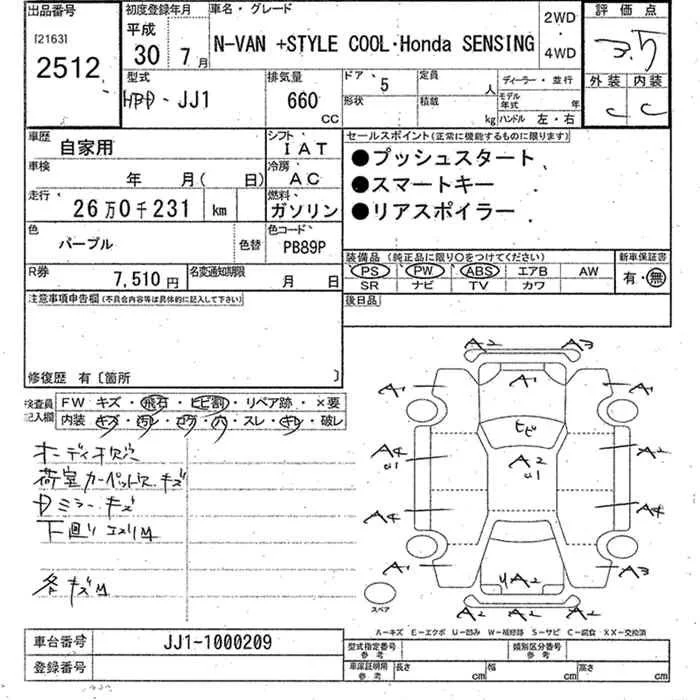 出品番号
[2163]
2512
初度登録年月
平成
30年 7月
車名・グレード
N-VAN +STYLE COOL・Honda SENSING
2WD
・
4WD
評価点
3.5
外装 内装
C C
型式
HBD-JJ1
排気量
660
CC
ドア
5
形状
定員
人
積載
kg
ディーラー・並行
モデル年式 年
ハンドル 左・右
車歴
自家用
シフト
IAT
車検
年 月( 日)
冷房
AC
走行
26万0千231 km
燃料
ガソリン
色
パープル
色替
色コード
PB89P
R券
7,510円
名変通知期限
月 日
セールスポイント(正常に機能するものに限ります)
●プッシュスタート
●スマートキー
●リアスポイラー
装備品 (純正品に限り○をつけてください)
PS PW ABS エアB AW
SR ナビ TV カワ
新車保証書
有・無
後日品
注意事項申告欄(不具合内容等は具体的に記入して下さい)
修復歴 有〔箇所 〕
検査員記入欄
FW キズ・飛石・ヒビ割・リペア跡・×要
内装・キズ・汚レ・コゲ・穴・スレ・キレ・破レ
オーディオ欠
荷室カーペット欠、キズ
Dミラーキズ
下廻りサビ有
各キズ有
A2 A3
A1 A1 A1
ヒビ
A4 A2 A2
U1 U1
A4 A4
A1 UA2 A3
A2 A2 A2
スペア
A-キズ E-エクボ U-凹み W-補修跡 S-サビ C-腐食 XX-交換済
車台番号
JJ1-1000209
登録番号
型式指定番号
参考
類別区分番号
参考
車庫証明用
参考
長さ cm
幅 cm
高さ cm